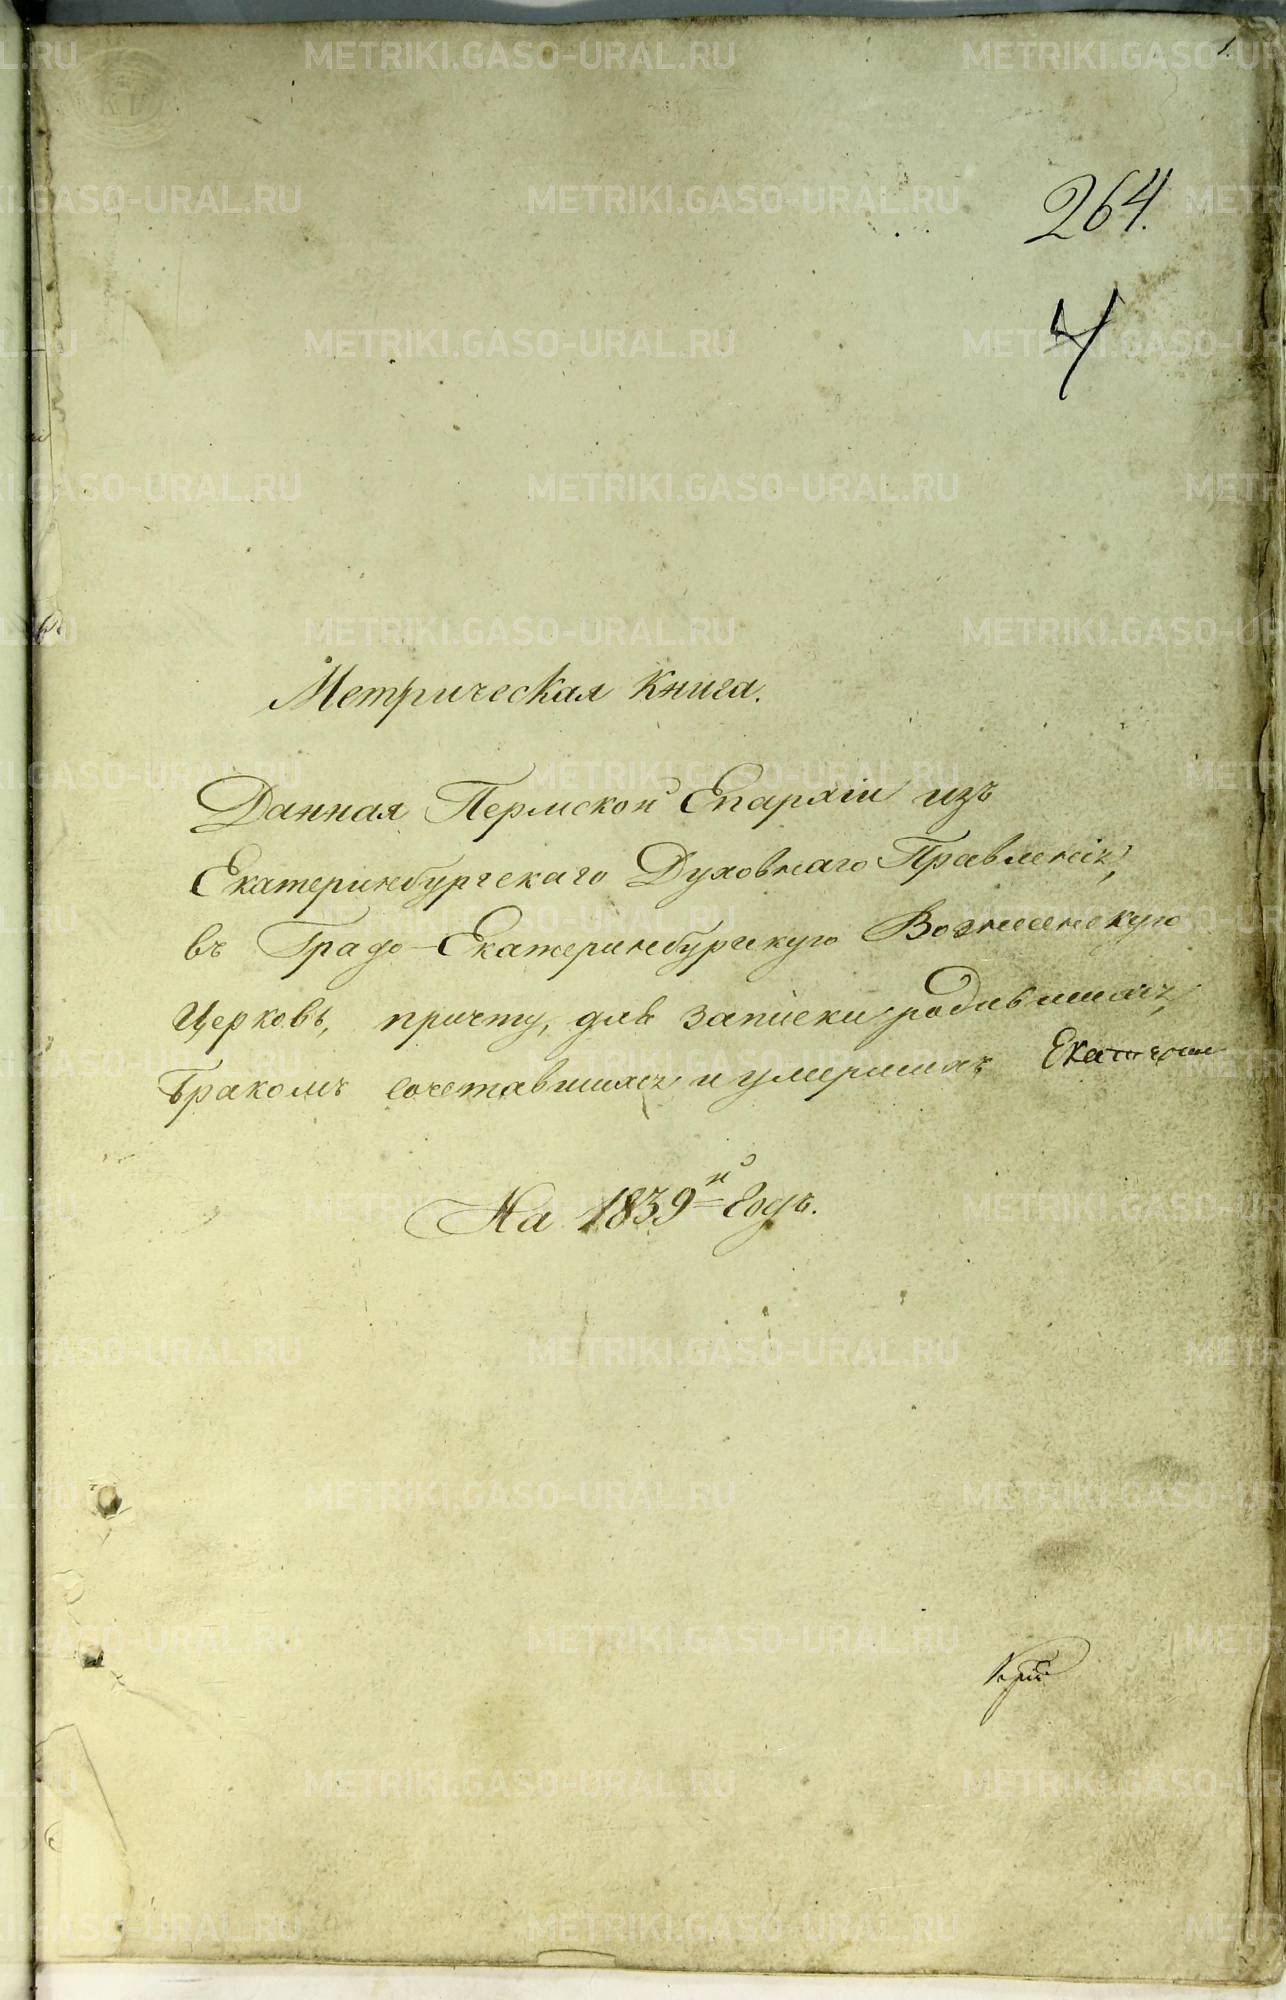 1.
264.
4
Метрическая Книга.
Данная Пермской Епархіи изъ
Екатеринбургскаго Духовнаго Правленія,
въ Градо-Екатеринбургскую Вознесенскую
Церковь, причту, для записки родившихся,
бракомъ сочетавшихся и умершихъ
На 1839й Годъ.